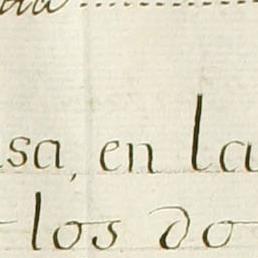 sa, en la
los do